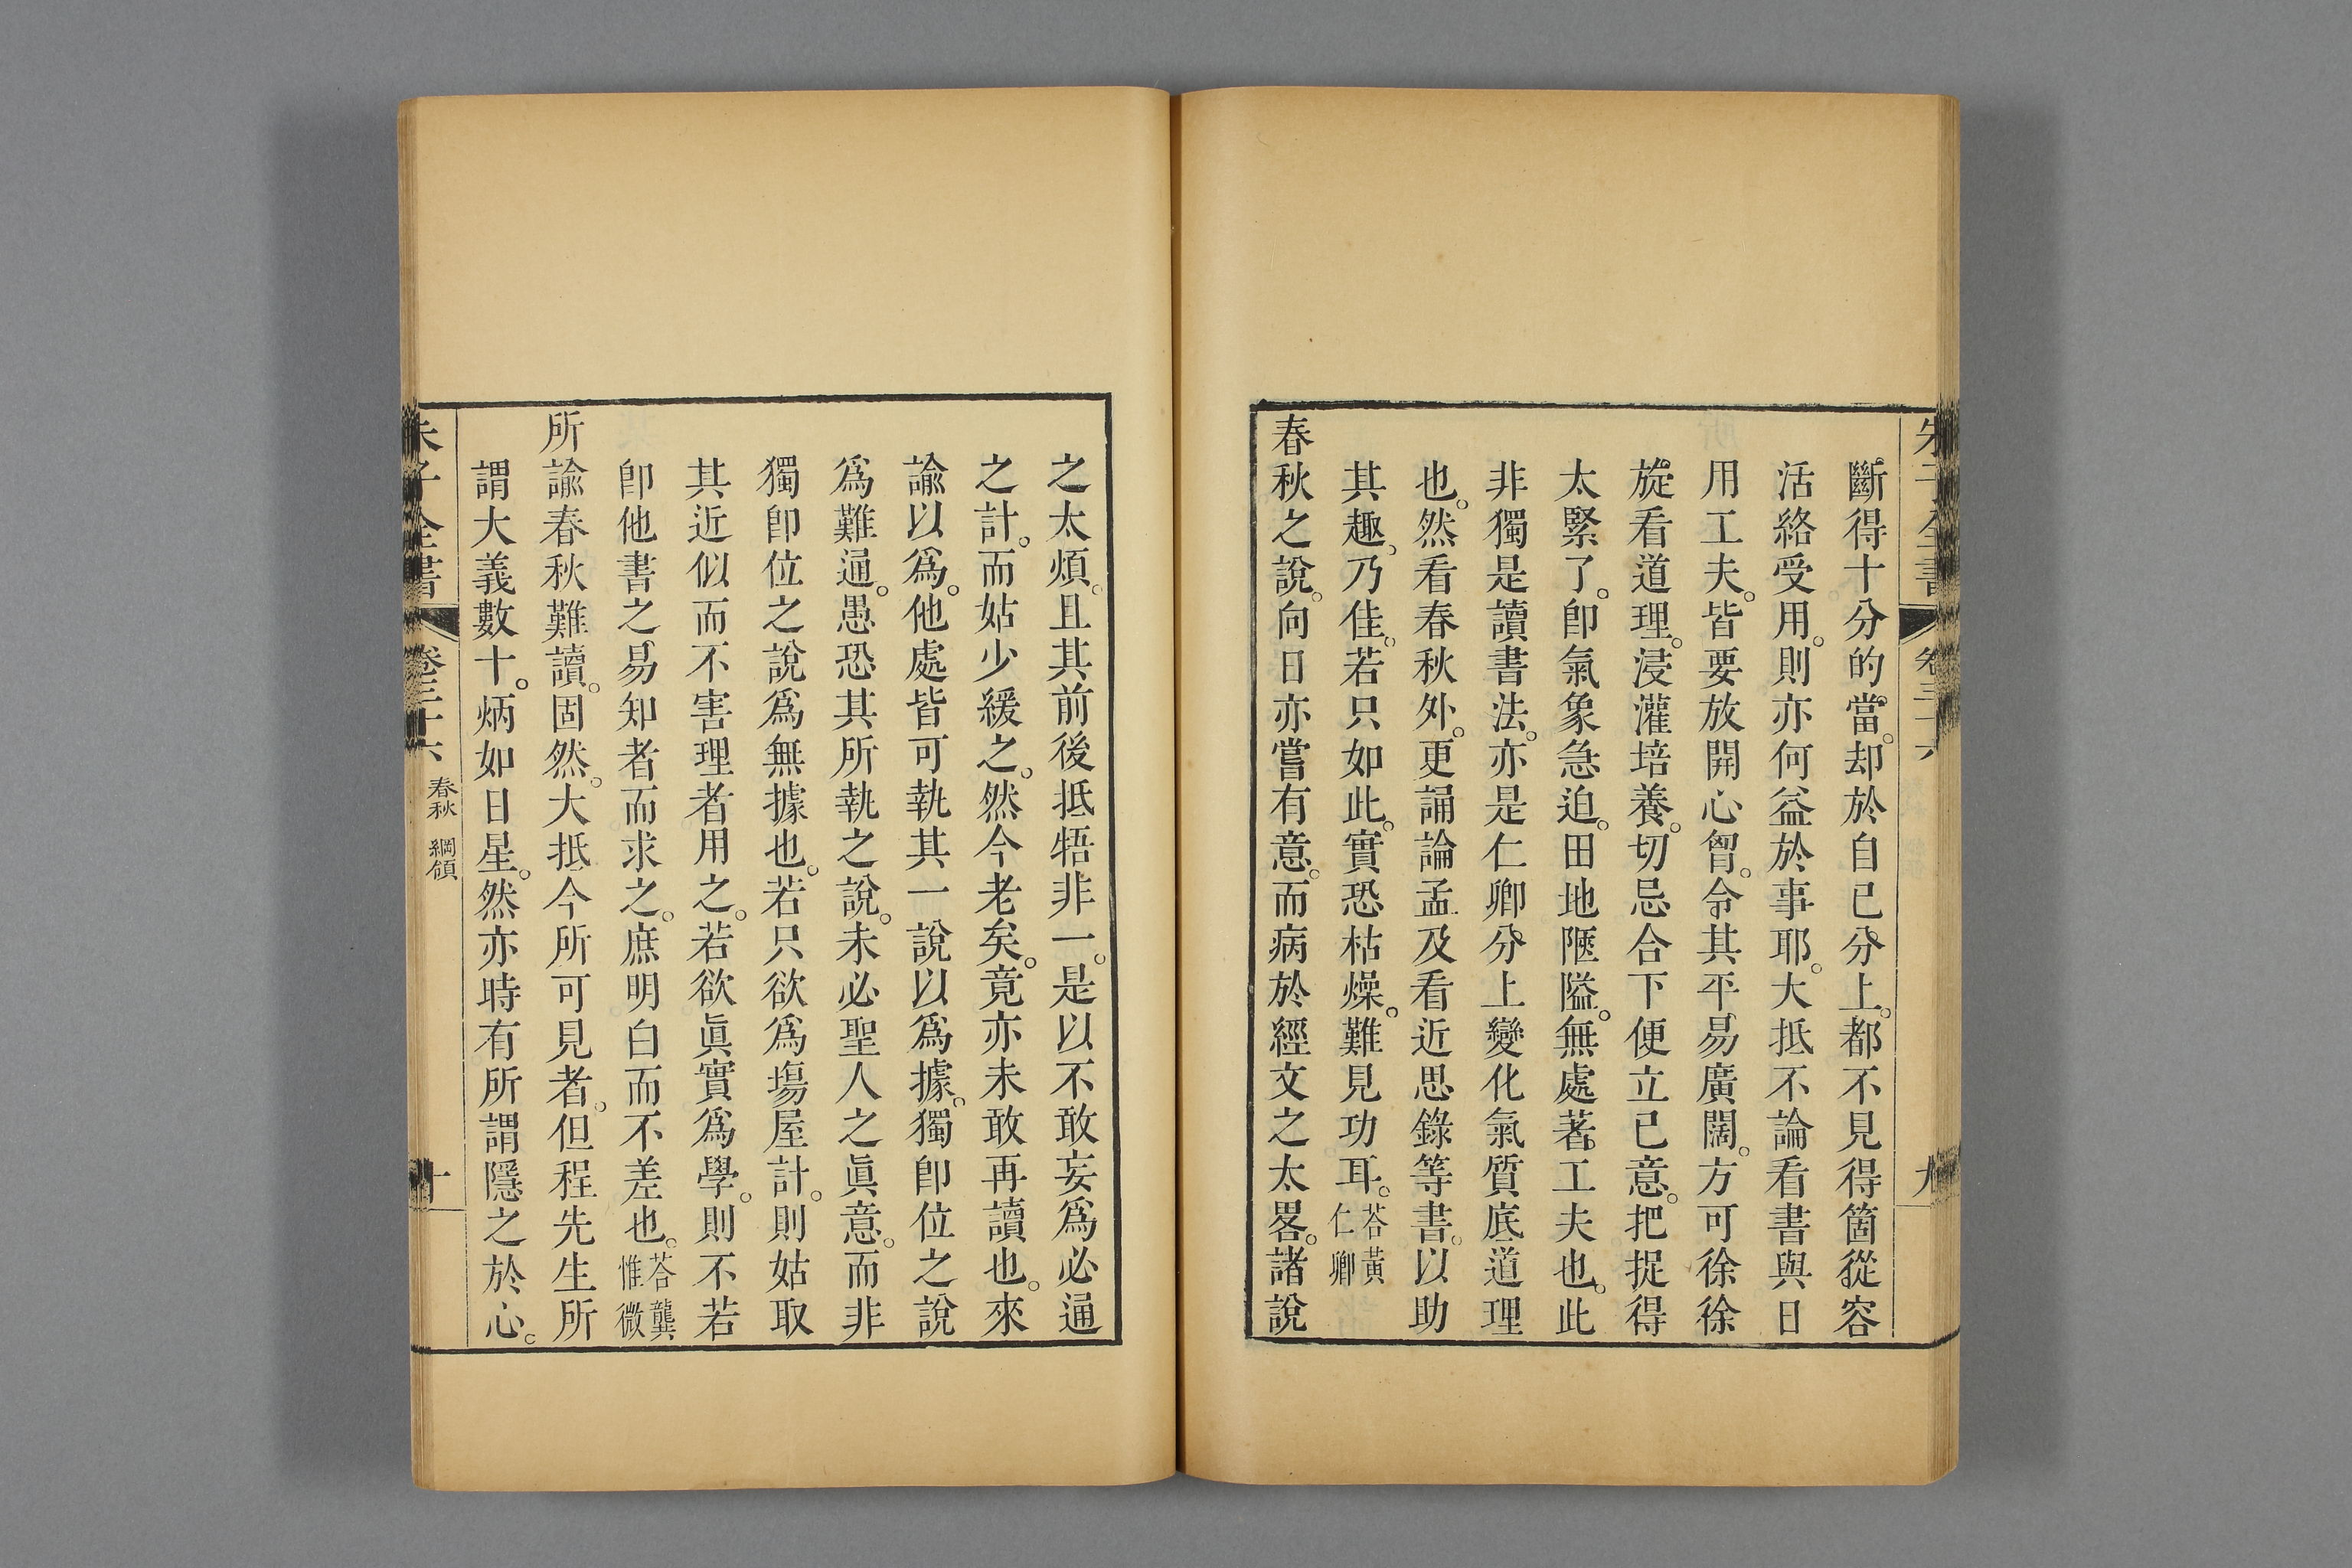 朱子全書 卷三十六 九
斷得十分的當。却於自已分上。都不見得箇從容
活絡受用。則亦何益於事耶。大抵不論看書與日
用工夫。皆要放開心胷。令其平易廣闊。方可徐徐
旋看道理。浸灌培養。切忌合下便立已意。把捉得
太緊了。卽氣象急迫。田地陿隘。無處著工夫也。此
非獨是讀書法。亦是仁卿分上變化氣質底道理
也。然看春秋外。更誦論孟及看近思錄等書。以助
其趣。乃佳。若只如此。實恐枯燥。難見功耳。荅黃仁卿
春秋之說。向日亦嘗有意。而病於經文之太畧。諸說
之太煩。且其前後抵牾非一。是以不敢妄爲必通
之計。而姑少緩之。然今老矣。竟亦未敢再讀也。來
諭以爲。他處皆可執其一說以爲據。獨卽位之說
爲難通。愚恐其所執之說。未必聖人之眞意。而非
獨卽位之說爲無據也。若只欲爲塲屋計。則姑取
其近似而不害理者用之。若欲眞實爲學。則不若
卽他書之易知者而求之。庶明白而不差也。荅龔惟微
所諭春秋難讀。固然。大抵今所可見者。但程先生所
謂大義數十。炳如日星。然亦時有所謂隱之於心。
朱子全書 卷三十六 春秋 綱領 十